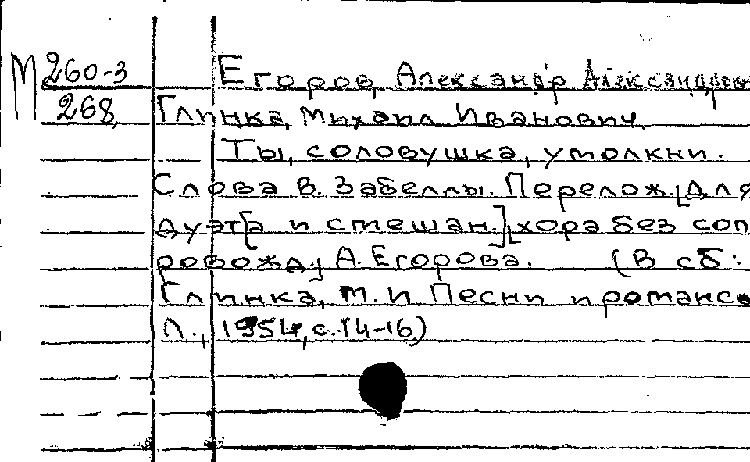 М 260-3 Егоров, Александр Александров
268 Глинка, Михаил Иванович.
Ты, соловушка, умолкни.
Слова В. Забеллы. Перелож. [для
дуэта и смешан.] [хора без соп
ровожд.] А. Егорова. (В сб:
Глинка, М. И Песни и романсы
Л., 1954, с. 14-16)